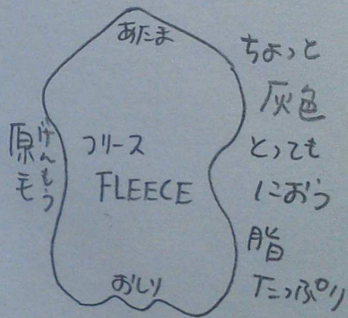 あたま
げんもう
原毛
フリース
FLEECE
おしり
ちょっと
灰色
とっても
におう
脂
たっぷり